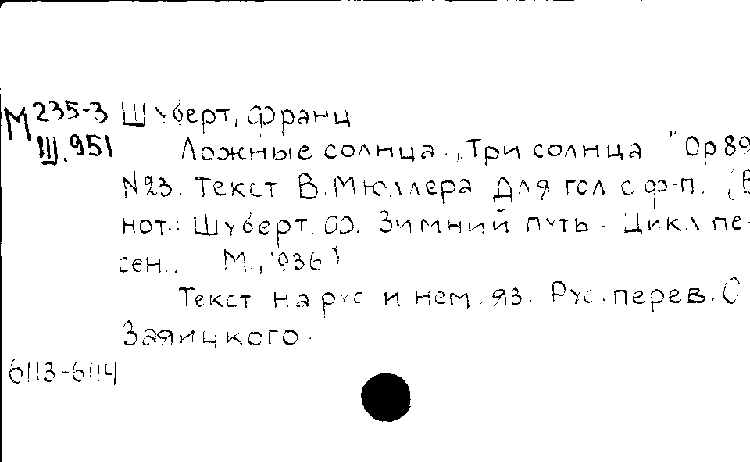 М 235-3 Шуберт, Франц
Ш. 951 Ложные солнца. „Три солнца" Op 89
N 23. Текст В. Мюллера Для гол с ф-п. [В
нот.: Шуберт Ф. Зимний путь. Цикл пе-
сен. М., 1936]
Текст на рус и нем. яз. Рус. перев. С
Заяицкого.
6113-6114